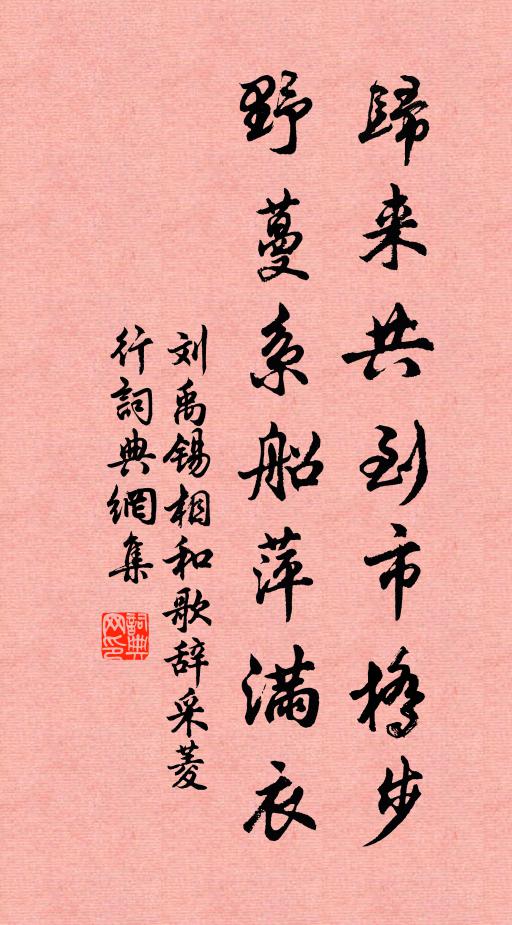 歸来共到市橋步
野蔓系船萍滿衣
刘禹锡相和歌辞采菱
行詞典網集
詞典网印